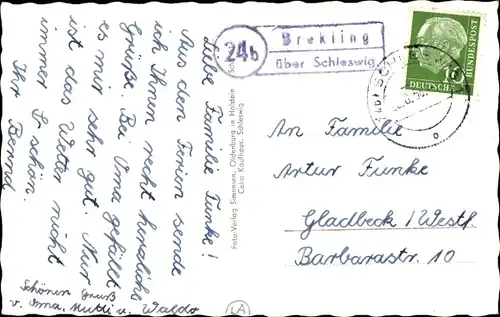 Liebe Familie Funke!
Aus den Ferien sende
ich Ihnen recht herzliche
Grüße. Bei Oma gefällt
es mir sehr gut. Nur
ist das Wetter nicht
immer so schön.
Ihr Bernd
Schönen Gruß
v. Oma, Mutti u. Waldo
Foto-Verlag Simonsen, Oldenburg in Holstein
Ceka Kaufhaus, Schleswig
24b
Brekling
über Schleswig
10
DEUTSCHE BUNDESPOST
An Familie
Artur Funke
Gladbeck / Westf.
Barbarastr. 10
LA